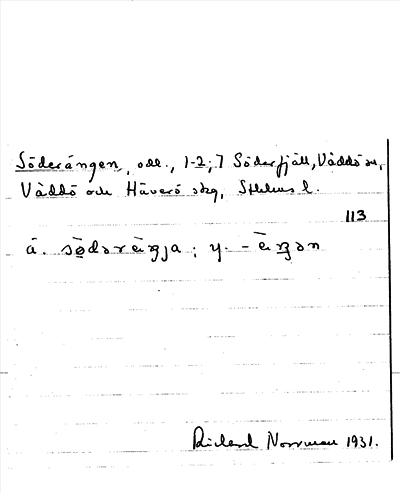 Söderängen, odl., 1-2; 7 Söderfjäll, Väddö sn,
Väddö och Häverö skg, Sthlms l.
113
ä. södərēŋja; y. -ēŋən
Rickard Norrman 1931.